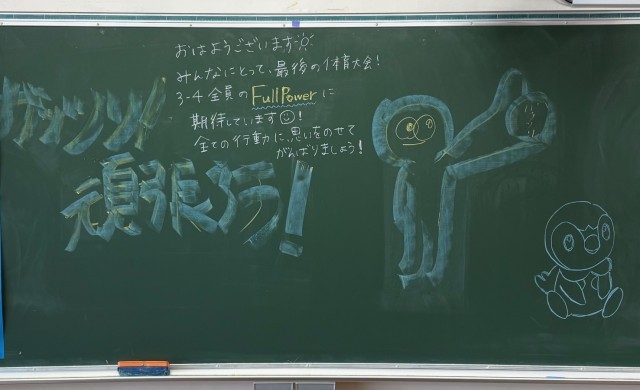 おはようございます
みんなにとって、最後の体育大会!
3-4 全員の Full Powerに
期待しています!
全ての行動に、思いをのせて
がんばりましょう!
頑張ろう!